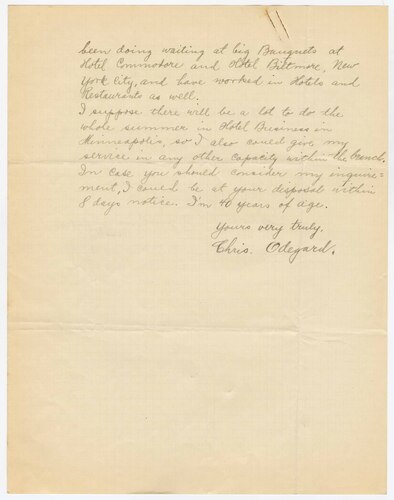 been doing waiting at big Banquets at
Hotel Commodore and Hotel Biltmore, New
York City, and have worked in Hotels and
Restaurants as well.
I suppose there will be a lot to do the
whole summer in Hotel Business in
Minneapolis, so I also could give my
service in any other capacity within the branch.
In case you should consider my inquire=
ment, I could be at your disposal within
8 days notice. I'm 40 years of age.
Yours very truly.
Chris. Odegard.